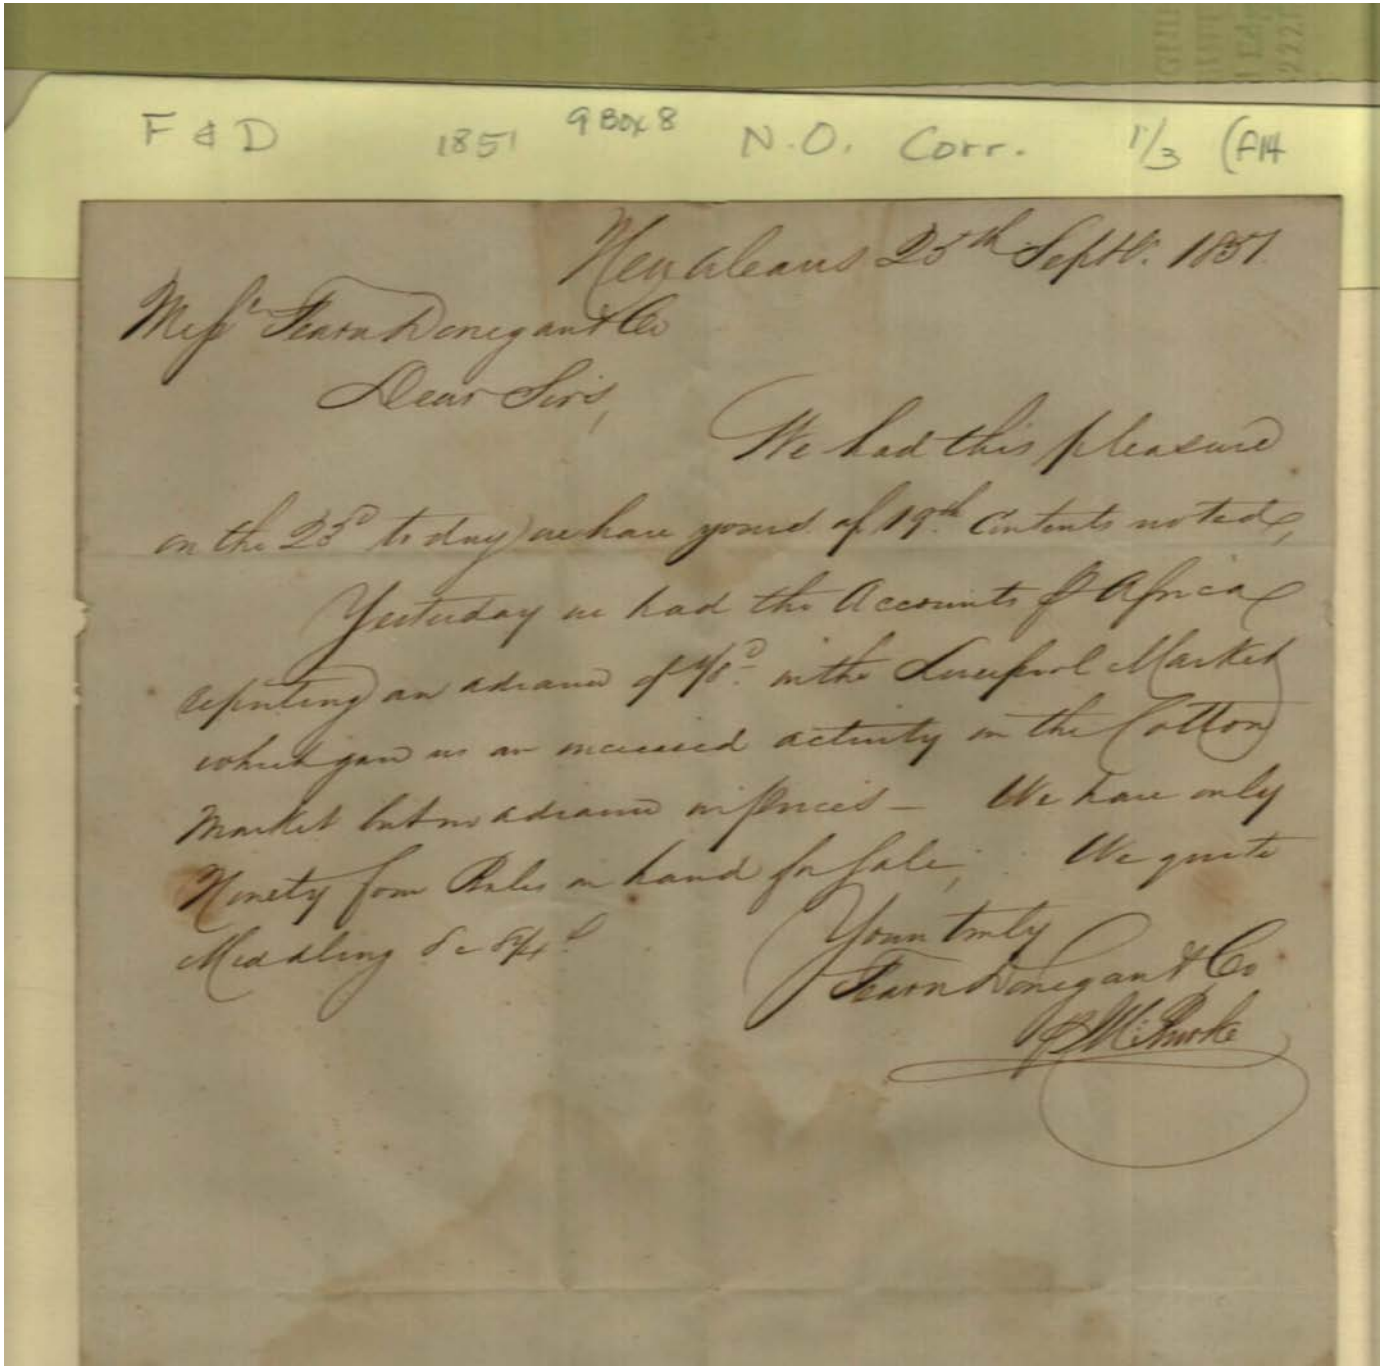 F & D 1851 9 Box 8 N.O. Corr. 1/3 (F14
New Orleans 25th Septr. 1851.
Messrs Fearn Donegan & Co
Dear Sirs,
We had this pleasure
on the 23d to day we have yours of 19th Contents noted,
Yesterday we had the Accounts p Africa
reporting an advance of 1/8d in the Liverpool Market
which gave us an increased activity in the Cotton
Market but no advance in prices – We have only
Ninety four Bales on hand for Sale, We quote
Middling 8 a 8 1/4 c
Yours truly
Fearn Donegan & Co